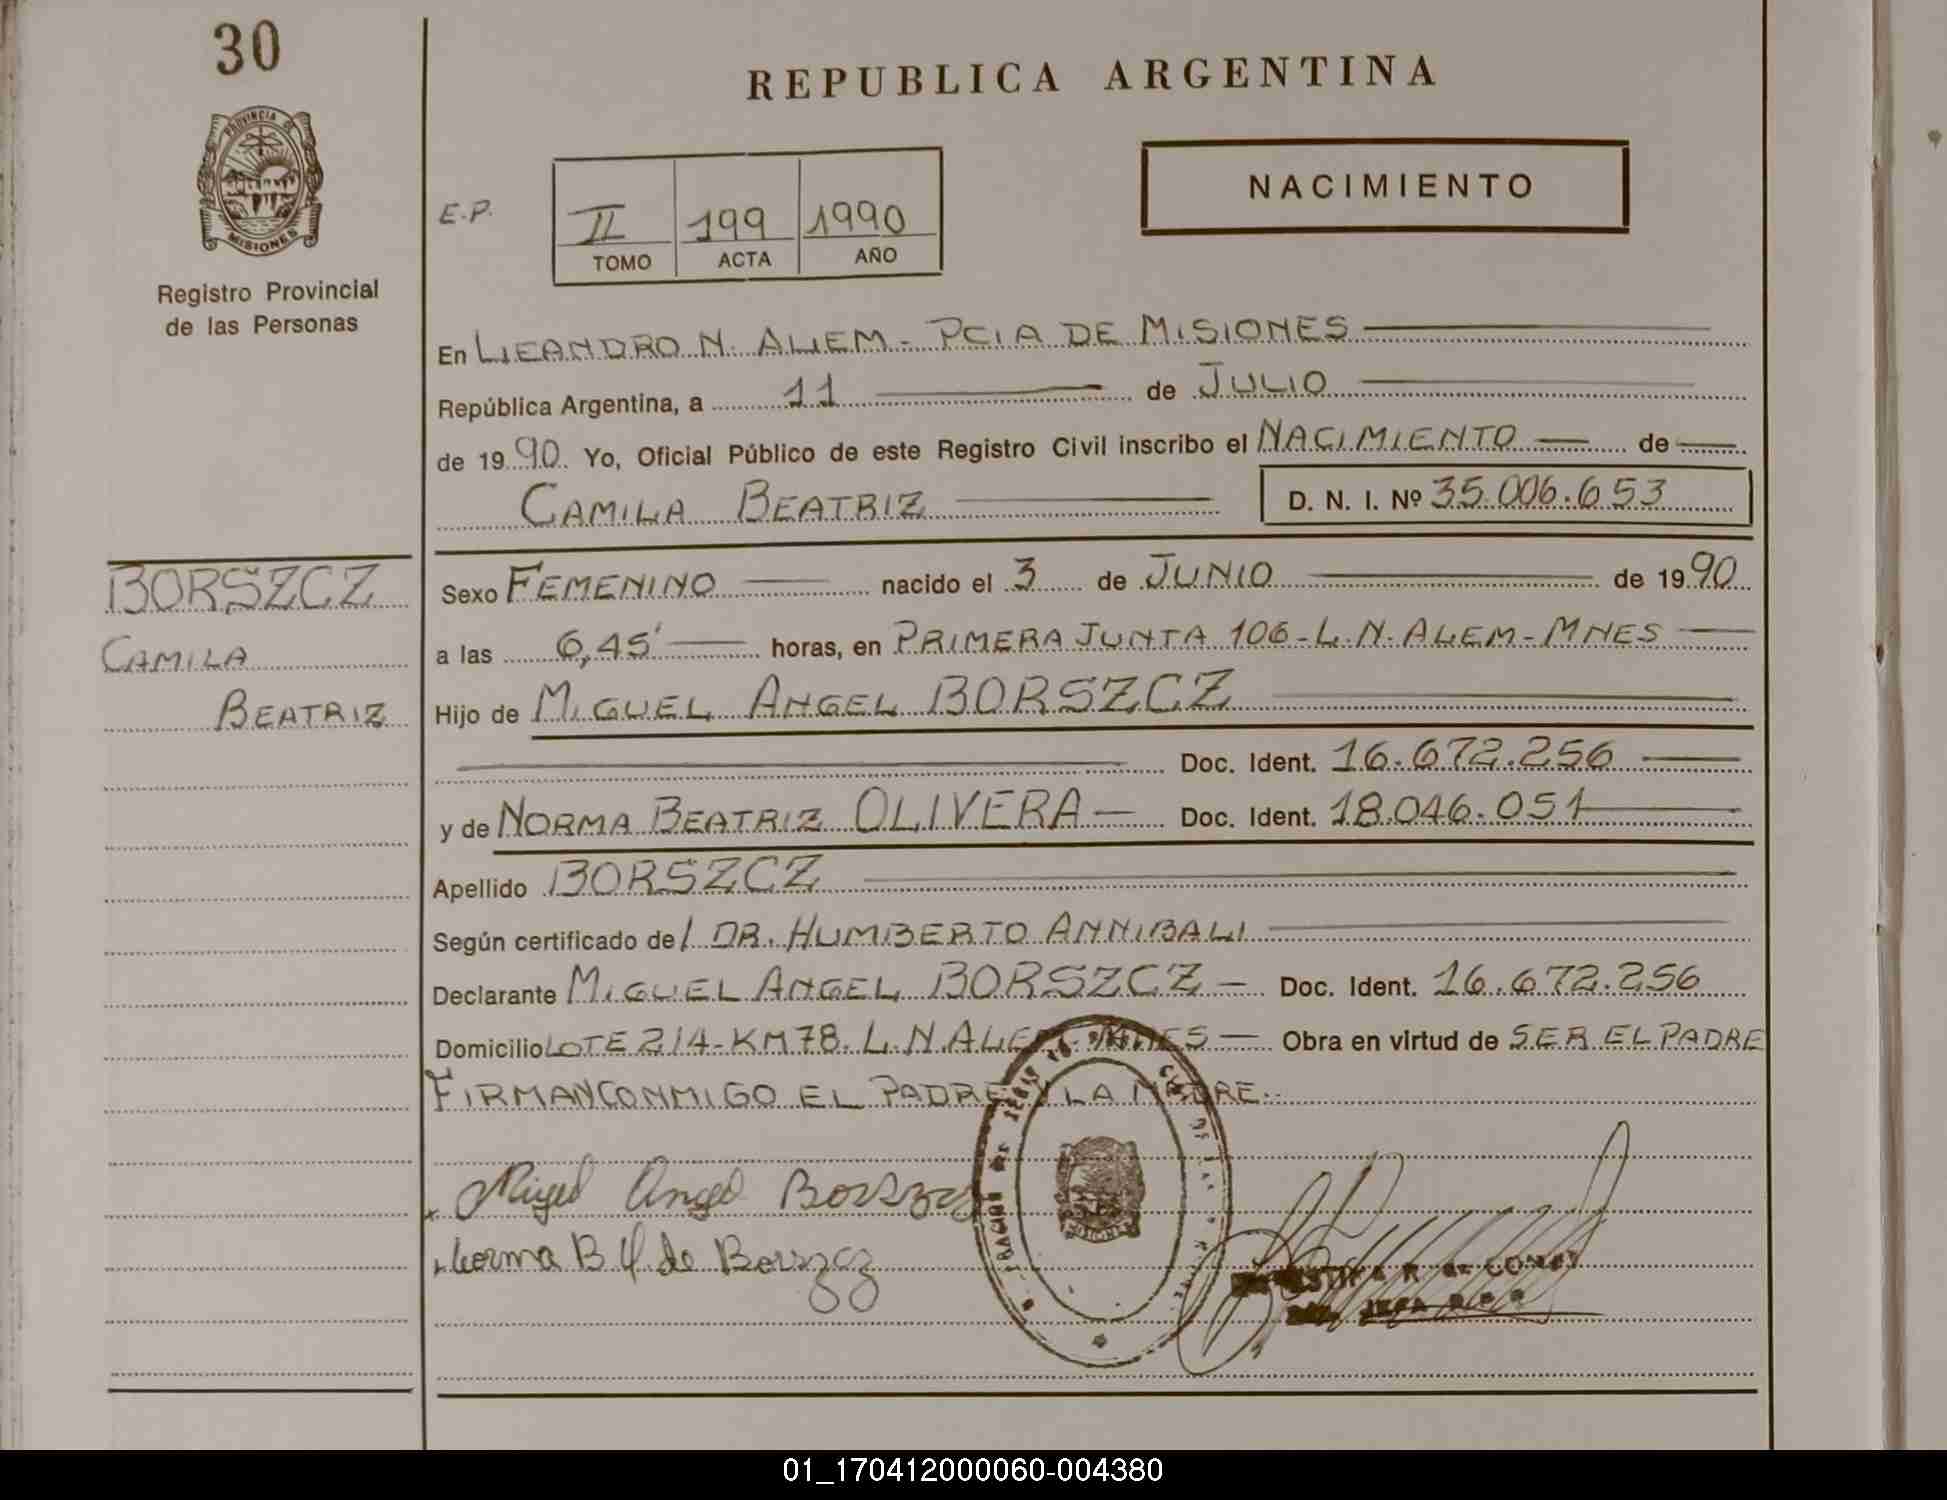 30
REPUBLICA ARGENTINA
PROVINCIA DE
MISIONES
Registro Provincial
de las Personas
E.P.
II 199 1990
TOMO ACTA AÑO
NACIMIENTO
En LEANDRO N. ALEM - PCIA DE MISIONES
República Argentina, a 11 de JULIO
de 1990. Yo, Oficial Público de este Registro Civil inscribo el NACIMIENTO de
CAMILA BEATRIZ D. N. I. Nº 35.006.653
BORSZCZ
CAMILA
BEATRIZ
Sexo FEMENINO nacido el 3 de JUNIO de 1990
a las 6,45' horas, en PRIMERA JUNTA 106 - L.N. ALEM - MNES
Hijo de MIGUEL ANGEL BORSZCZ
Doc. Ident. 16.672.256
y de NORMA BEATRIZ OLIVERA Doc. Ident. 18.046.051
Apellido BORSZCZ
Según certificado de/ DR. HUMBERTO ANNIBALI
Declarante MIGUEL ANGEL BORSZCZ Doc. Ident. 16.672.256
Domicilio LOTE 214 - KM 78. L.N. ALEM - MNES Obra en virtud de SER EL PADRE
FIRMAN CONMIGO EL PADRE Y LA MADRE.
Miguel Angel Borszcz
Norma B de Borszcz
MISIONES
JEFA
01_170412000060-004380